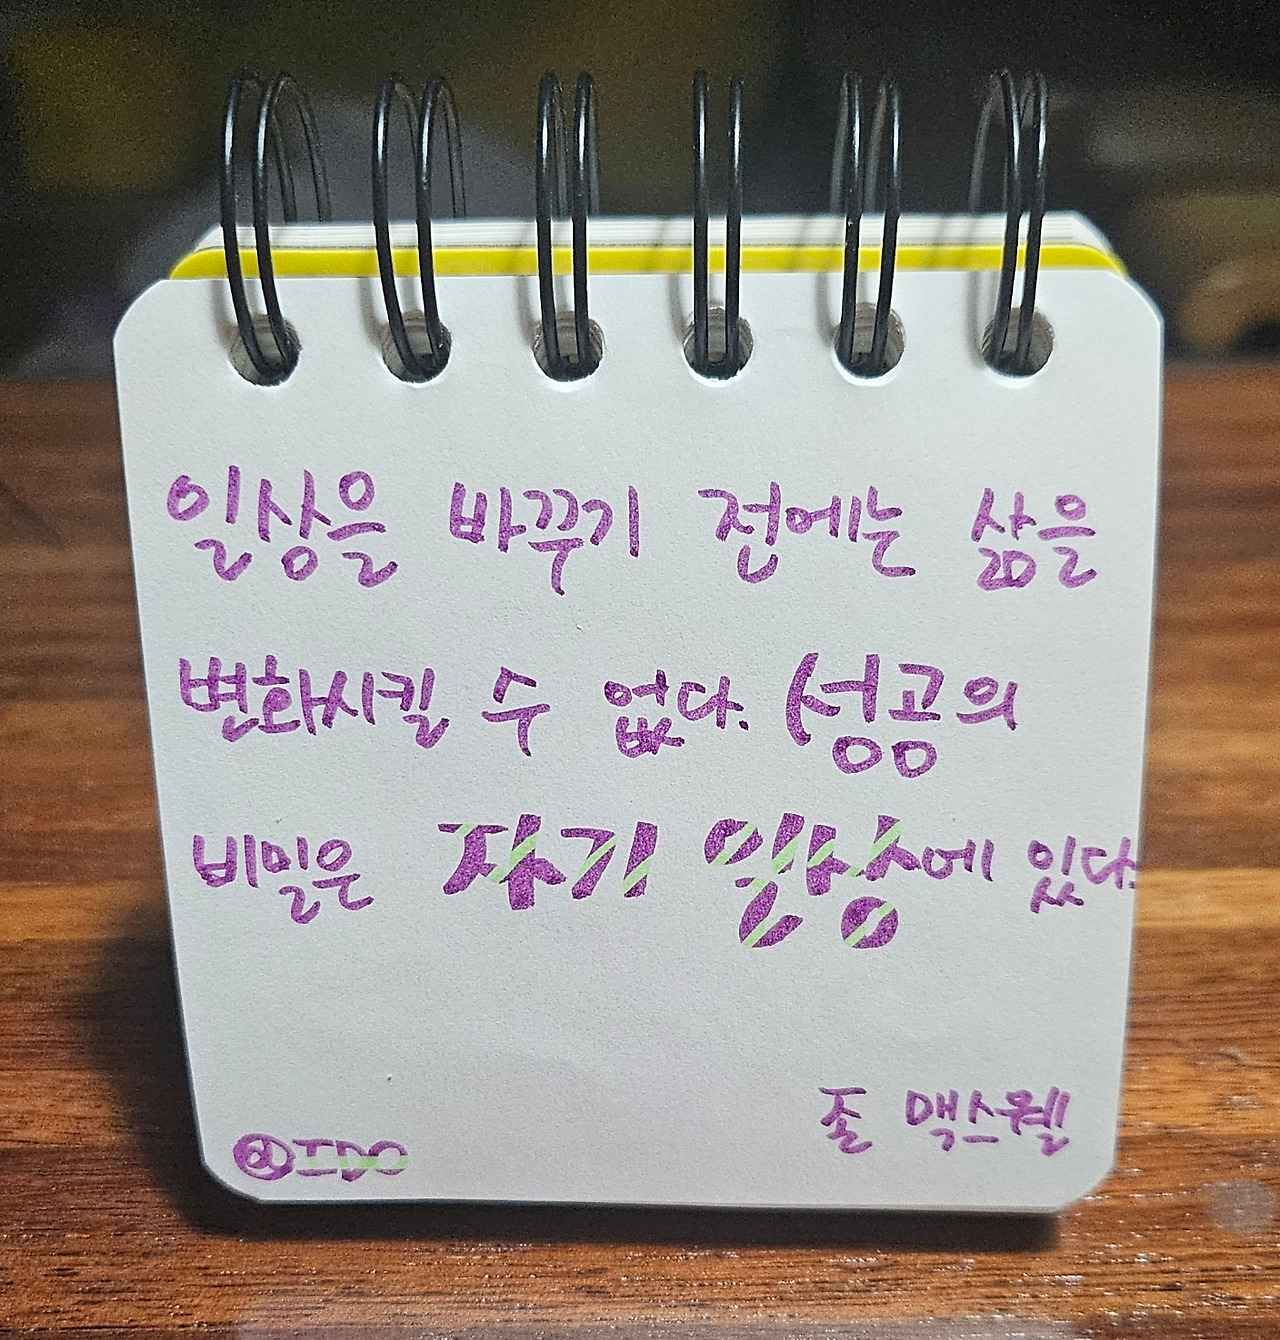 일상을 바꾸기 전에는 삶을
변화시킬 수 없다. 성공의
비밀은 자기 일상에 있다.
존 맥스웰
@IDO